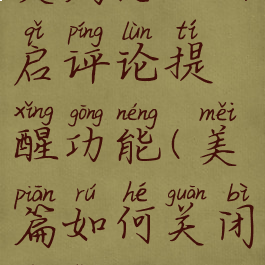 qǐ píng lùn tí
启评论提
xǐng gōng néng měi
醒功能(美
piān rú hé guān bì
篇如何关闭